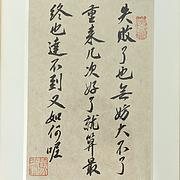 失敗了也無妨大不了
重来几次好了就算最
終也達不到又如何喔